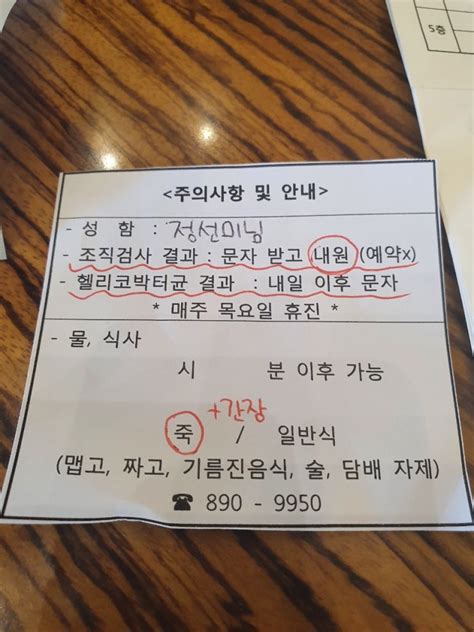 5층
<주의사항 및 안내>
- 성 함 : 정선미님
- 조직검사 결과 : 문자 받고 내원 (예약x)
- 헬리코박터균 결과 : 내일 이후 문자
* 매주 목요일 휴진 *
- 물, 식사
시 분 이후 가능
+간장
죽 / 일반식
(맵고, 짜고, 기름진음식, 술, 담배 자제)
☎ 890 - 9950